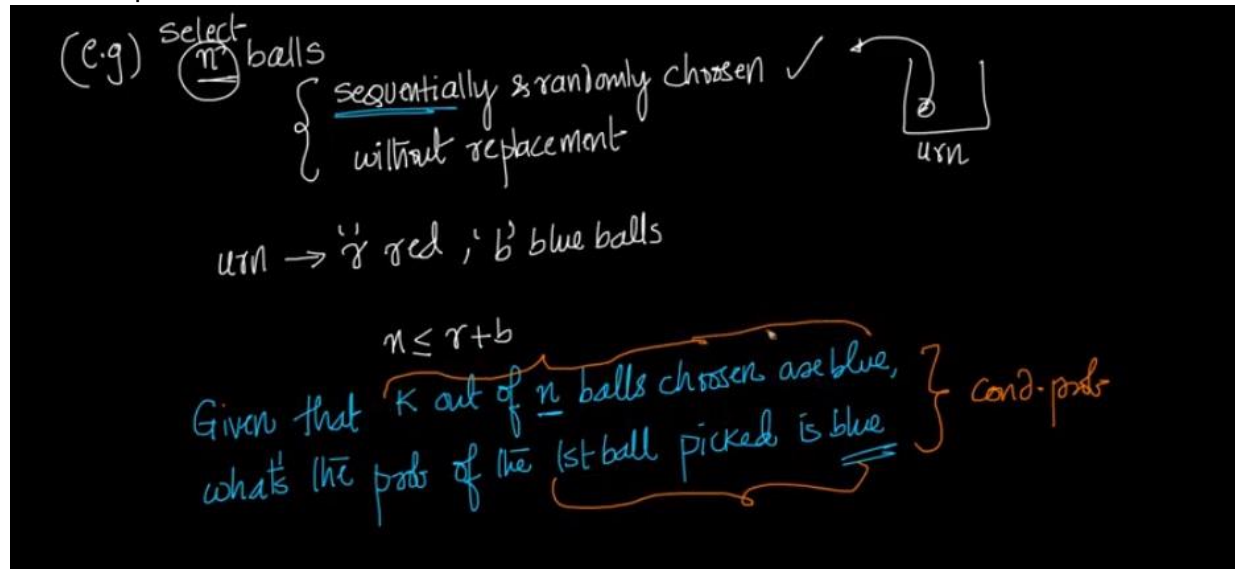 (e.g) select
"n" balls
sequentially & randomly choosen ✓
without replacement
urn
urn → "r" red, 'b' blue balls
n ≤ r+b
Given that K out of n balls choosen are blue,
what's the prob of the 1st ball picked is blue
cond. prob